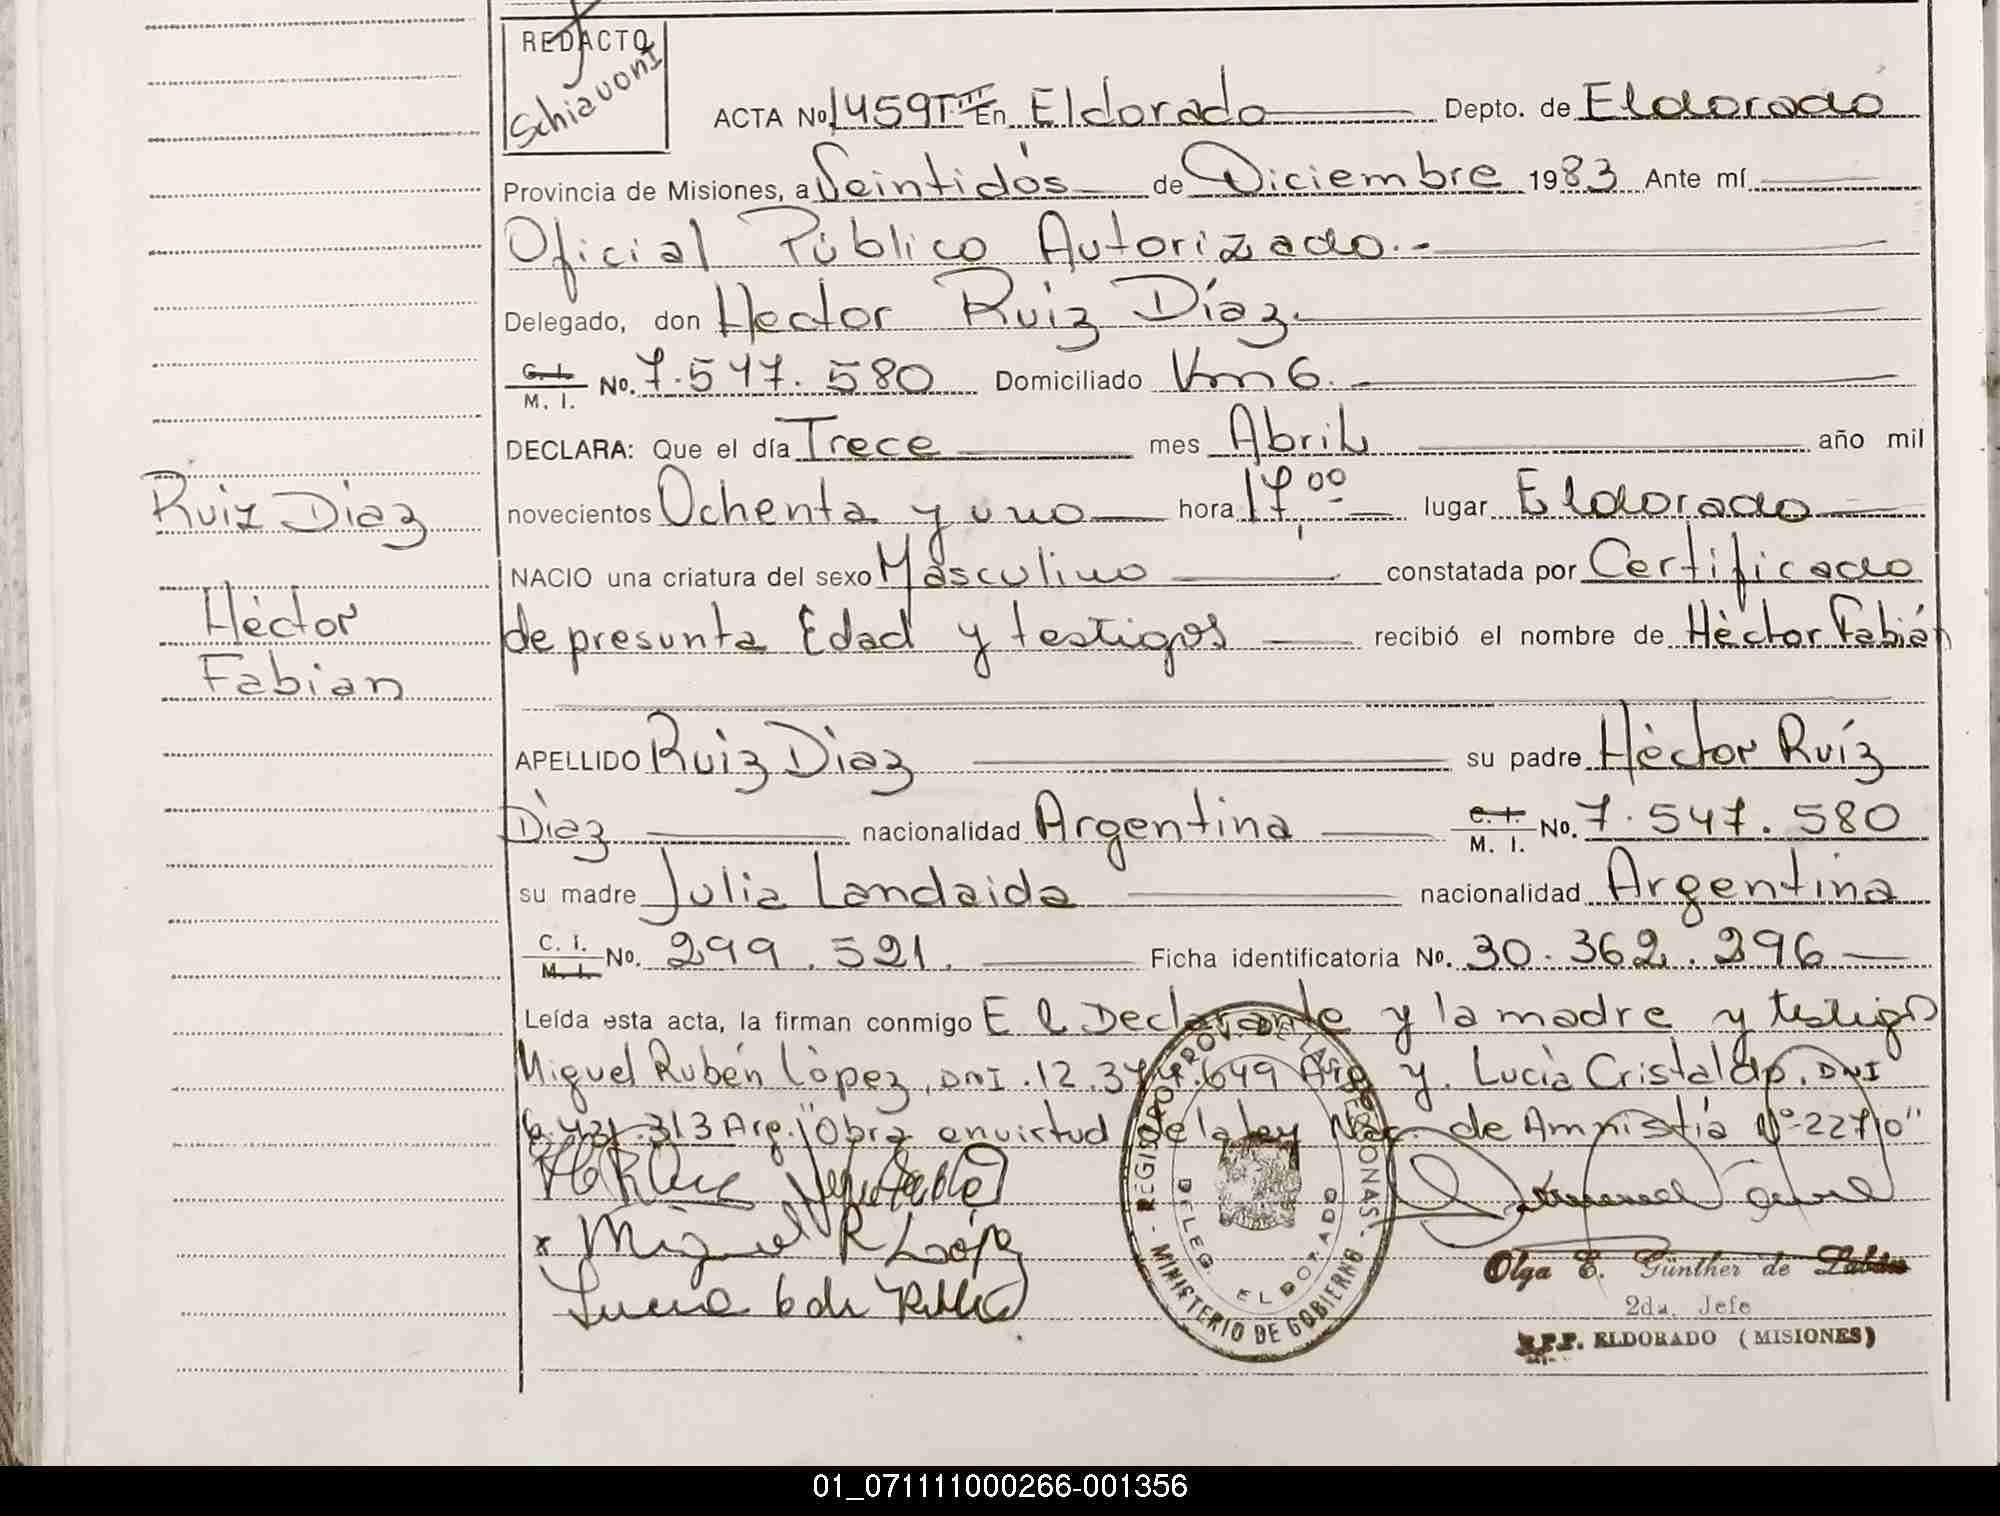 REDACTO
Schiavoni
ACTA No 1459 T. III En Eldorado Depto. de Eldorado
Provincia de Misiones, a Veintidós de Diciembre 1983 Ante mí
Oficial Público Autorizado.-
Delegado, don Hector Ruiz Díaz.
C. I. / M. I. No. 7.547.580 Domiciliado Km 6.
DECLARA: Que el día Trece mes Abril año mil
novecientos Ochenta y uno hora 17,00 lugar Eldorado
NACIO una criatura del sexo Masculino constatada por Certificado
de presunta Edad y testigos recibió el nombre de Hèctor Fabián
APELLIDO Ruiz Diaz su padre Hèctor Ruíz
Dìaz nacionalidad Argentina C. I. / M. I. No. 7.547.580
su madre Julia Landaida nacionalidad Argentina
C. I. / M. I. No. 299.521. Ficha identificatoria No. 30.362.296
Leída esta acta, la firman conmigo El Declarante y la madre y testigos
Miguel Rubén Lòpez, DNI.12.344.649 Arg y. Lucìa Cristaldo, DNI
313 Arg. "Obra en virtud de la ley Nac. de Amnistía Nº 22710"
Miguel R López
Ruiz Diaz
Hèctor
Fabian
REGISTRO PROV. DE LAS PERSONAS
MINISTERIO DE GOBIERNO
DELEG. ELDORADO
Olga E. Günther de
2da. Jefe
ELDORADO (MISIONES)
01_071111000266-001356